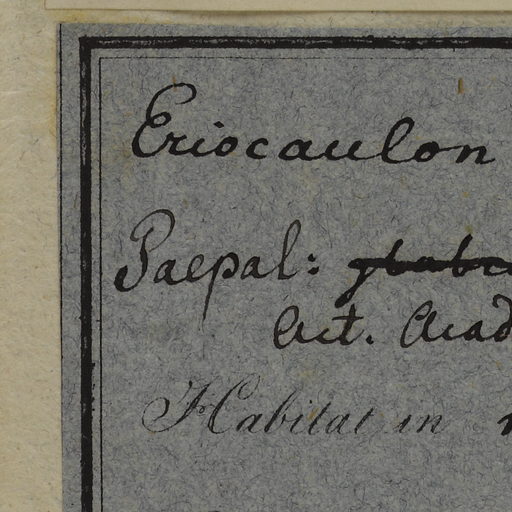 Eriocaulon
Paepal:
Act. Acad
Habitat in